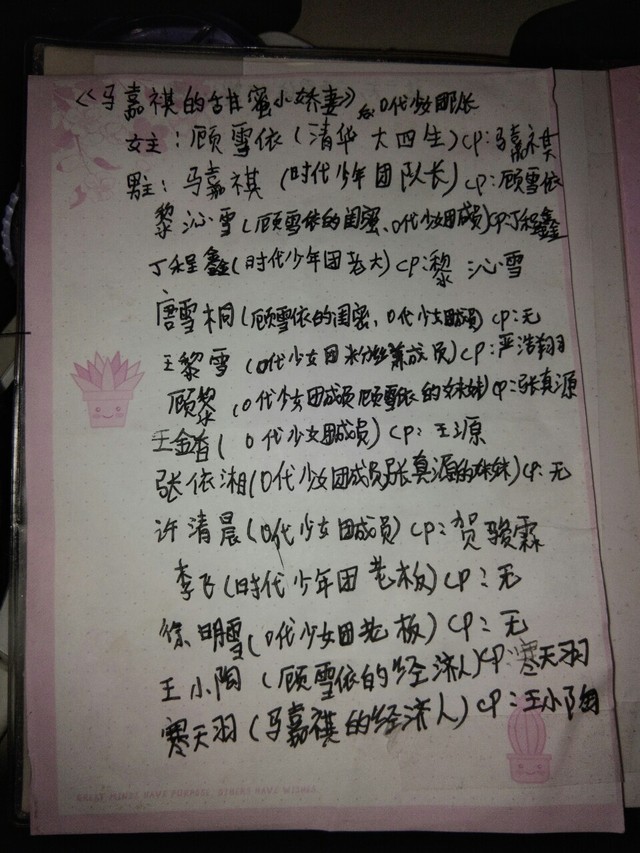 《马嘉祺的甜蜜小娇妻》 0代少女团队长
女主:顾雪依(清华大四生)cp:马嘉祺
男主:马嘉祺(时代少年团队长)cp:顾雪依
黎沁雪(顾雪依的闺蜜、0代少女团成员)cp:丁程鑫
丁程鑫(时代少年团老大)cp:黎沁雪
唐雪桐(顾雪依的闺蜜,0代少女团成员)cp:无
王黎雪(0代少女团粉丝兼成员)cp:严浩翔
顾黎(0代少女团成员顾雪依的妹妹)cp:张真源
王金香(0代少女团成员)cp:王源
张依湘(0代少女团成员张真源的妹妹)cp:无
许清晨(0代少女团成员)cp:贺骏霖
李飞(时代少年团老板)cp:无
徐明雪(0代少女团老板)cp:无
王小陶(顾雪依的经济人)cp:寒天羽
寒天羽(马嘉祺的经济人)cp:王小陶